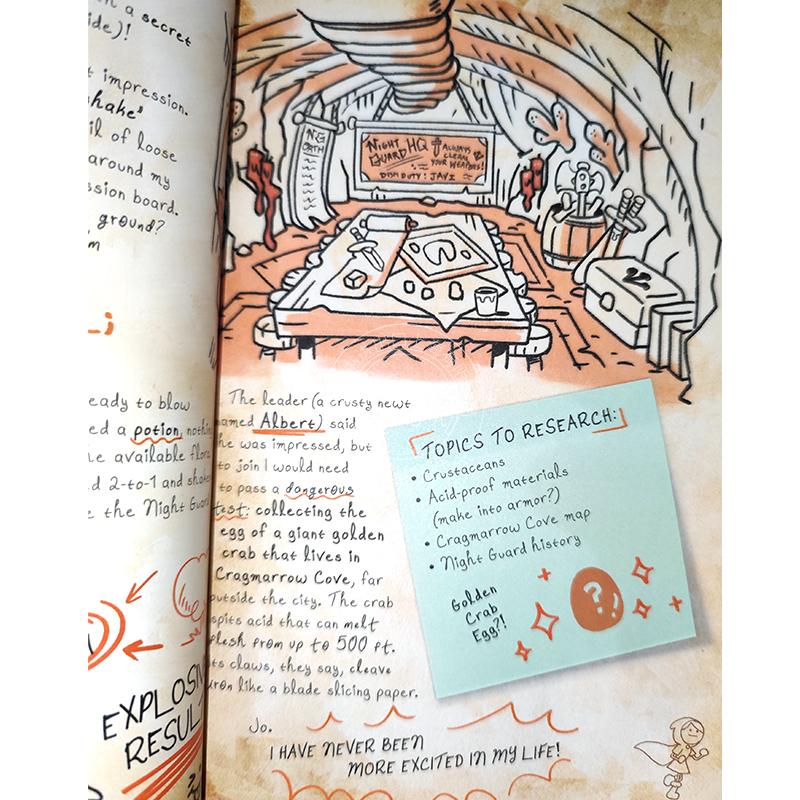 n a secret
ide)!
t impression.
hake"
il of loose
around my
ssion board.
ground?
m
eady to blow
ed a potion, nothin
e available flora
d 2-to-1 and shake
e the Night Guard
EXPLOSIV
RESUL
N-G
OATH
NIGHT
GUARD HQ
ALWAYS
CLEAN
YOUR WEAPONS!
DISH DUTY: JAVI
The leader (a crusty newt
named Albert) said
he was impressed, but
to join I would need
to pass a dangerous
test: collecting the
egg of a giant golden
crab that lives in
Cragmarrow Cove, far
outside the city. The crab
spits acid that can melt
flesh from up to 500 ft.
ts claws, they say, cleave
iron like a blade slicing paper.
TOPICS TO RESEARCH:
• Crustaceans
• Acid-proof materials
(make into armor?)
• Cragmarrow Cove map
• Night Guard history
Golden
Crab
Egg?!
?!
Jo.
I HAVE NEVER BEEN
MORE EXCITED IN MY LIFE!